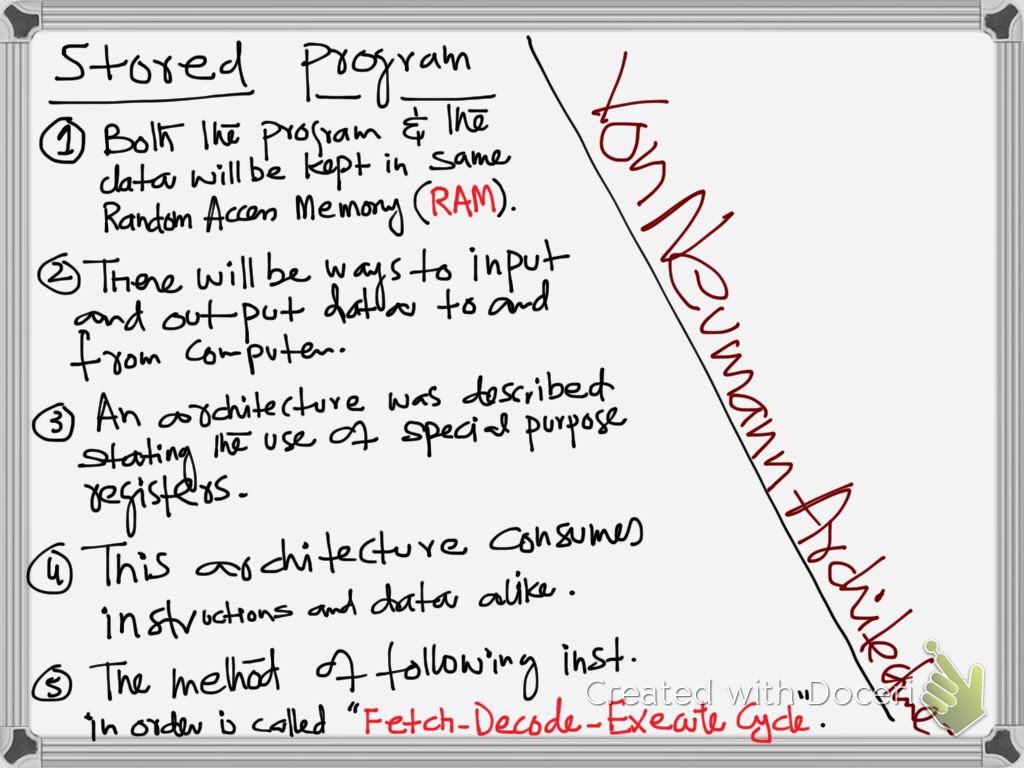 Stored Program
① Both the program & the
data will be kept in same
Random Access Memory (RAM).
② There will be ways to input
and output data to and
from computer.
③ An architecture was described
stating the use of special purpose
registers.
④ This architecture consumes
instructions and data alike.
⑤ The method of following inst.
in order is called "Fetch-Decode-Execute Cycle".
Von Neumann Architecture
Created with Doceri